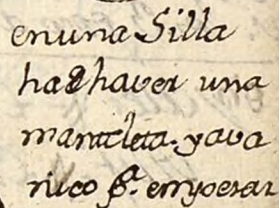 en una Silla
ha d haver una
manteleta. y ava
nico pª. empesar